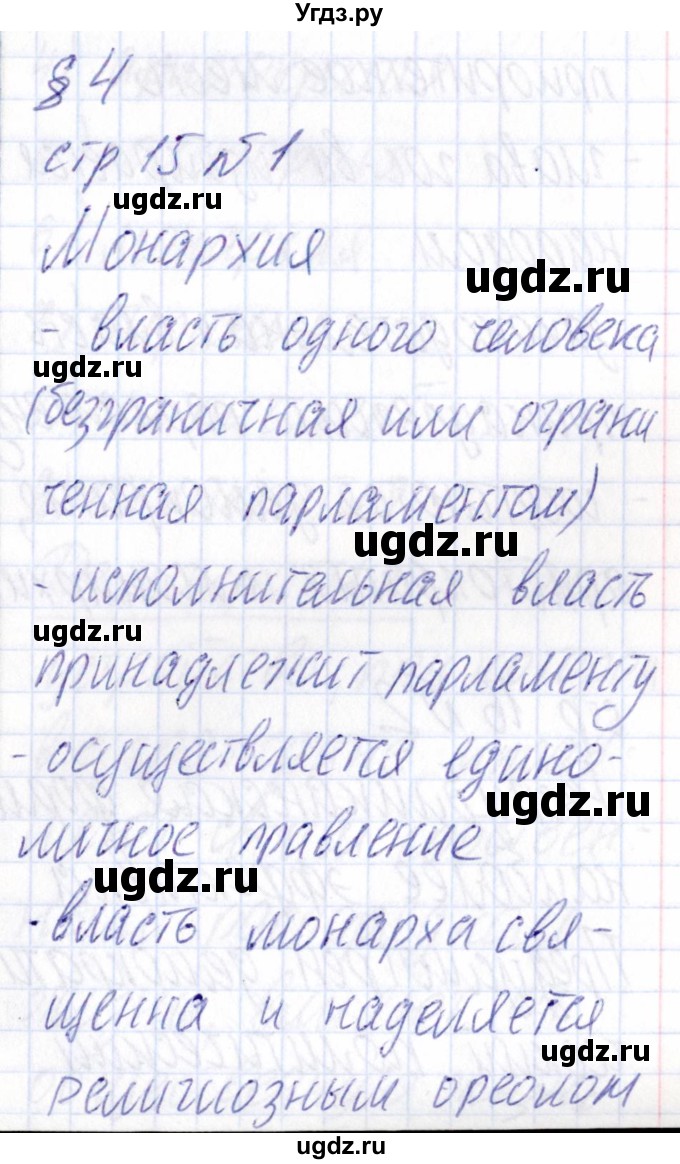 Угдз.ру
§ 4
стр 15 № 1
ugdz.ru
Монархия
ugdz.ru
- власть одного человека
ugdz.ru
(безграничная или ограни
ченная парламентом)
ugdz.ru
- исполнительная власть
ugdz.ru
принадлежит парламенту
- осуществляется едино-
ugdz.ru
личное правление
ugdz.ru
- власть монарха свя-
щенна и наделяется
ugdz.ru
религиозным ореолом
ugdz.ru